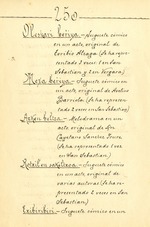 250
Oleskari berriya.- Juguete cómico
en un acto, original de
Toribio Alzaga (se ha re-
presentado 3 veces en San
Sebastian y en Vergara)
Meza berriya.- Juguete cómico
en un acto original de Avelino
Barriola (se ha represen-
tado 2 veces en San Sebas-
Anton - Melodrama en un
acto original de Dn
Cayetano Sanchez Irure
(se ha representado 1 vez
en San Sebastian)
Juguete cómico
en un acto original de
varios autores (se han re-
presentado 2 veces en San
Sebastian)
Juguete cómico en un